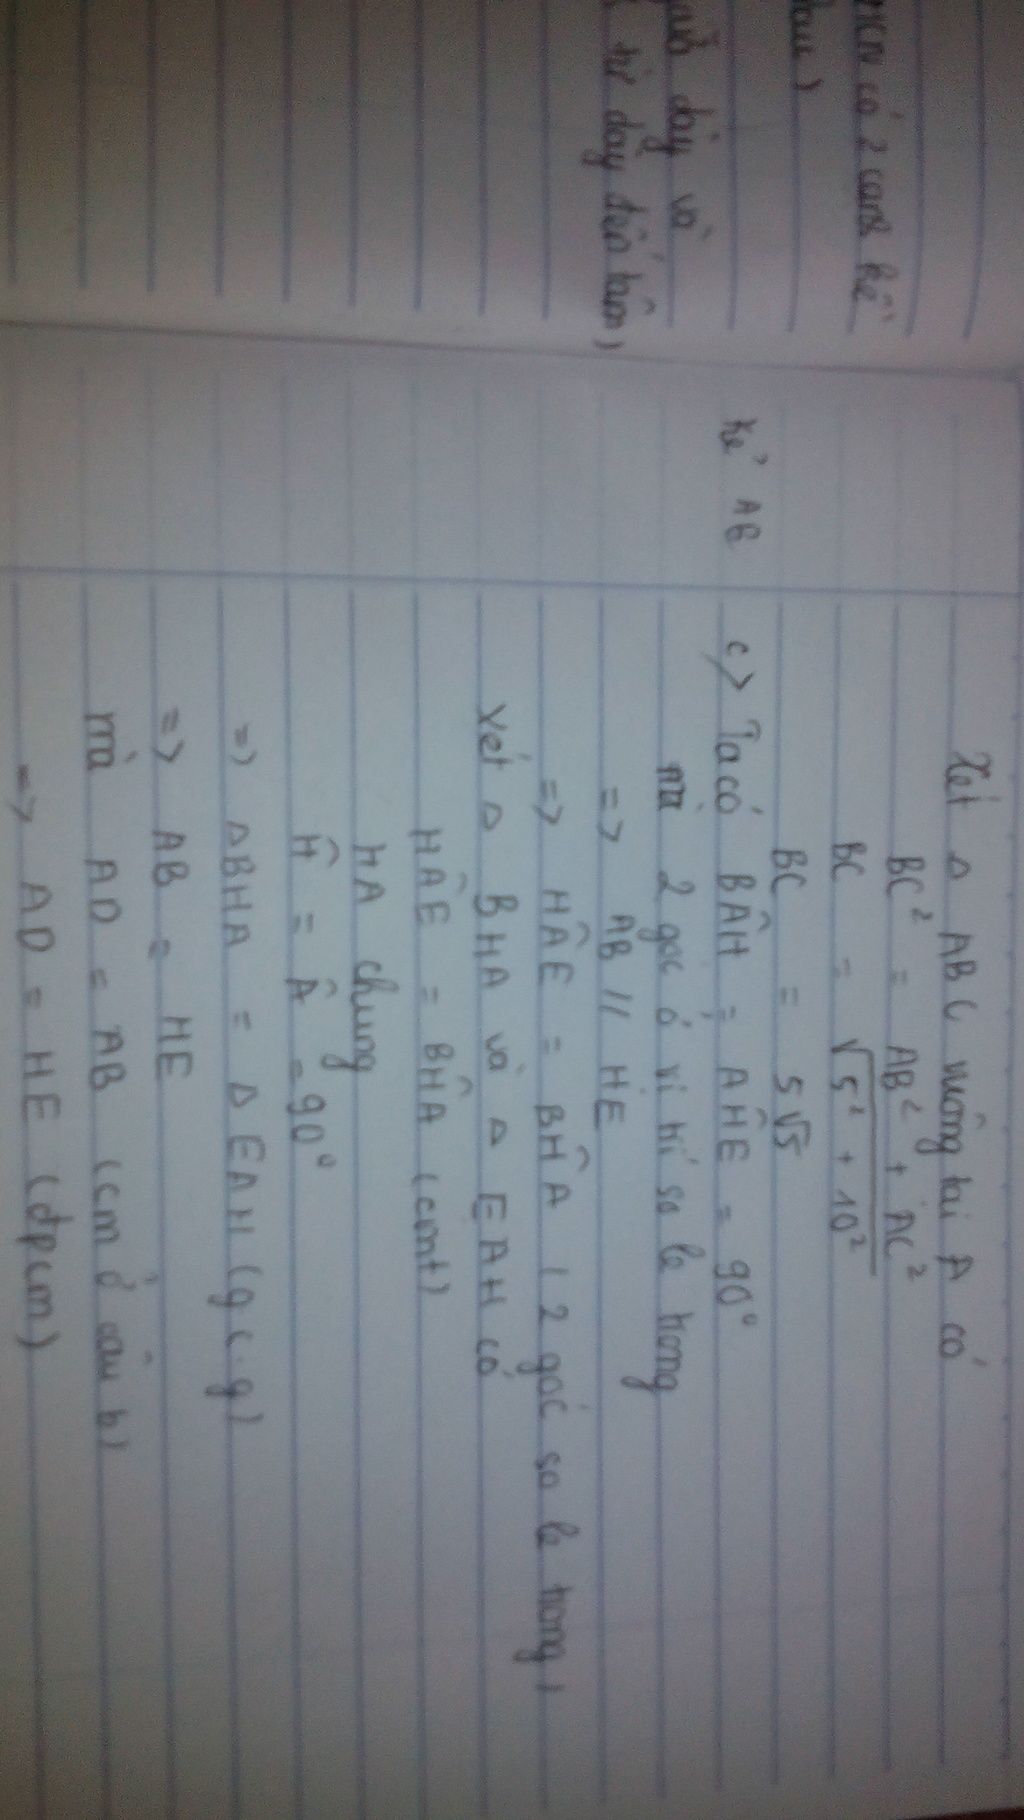 có 2 cạnh kề
dây và
từ dây đến tâm)
Xét △ ABC vuông tại A có
BC² = AB² + AC²
BC = √5² + 10²
BC = 5√5
kẻ AB
c> Ta có BÂH = AĤE = 90°
mà 2 góc ở vị trí so le trong
=> AB // HE
=> HÂE = BĤA ( 2 góc so le trong )
Xét △ BHA và △ EAH có
HÂE = BĤA (cmt)
HA chung
Ĥ = Â = 90°
=> △BHA = △EAH (g.c.g)
=> AB = HE
mà AD = AB (cm ở câu b)
=> AD = HE (đpcm)